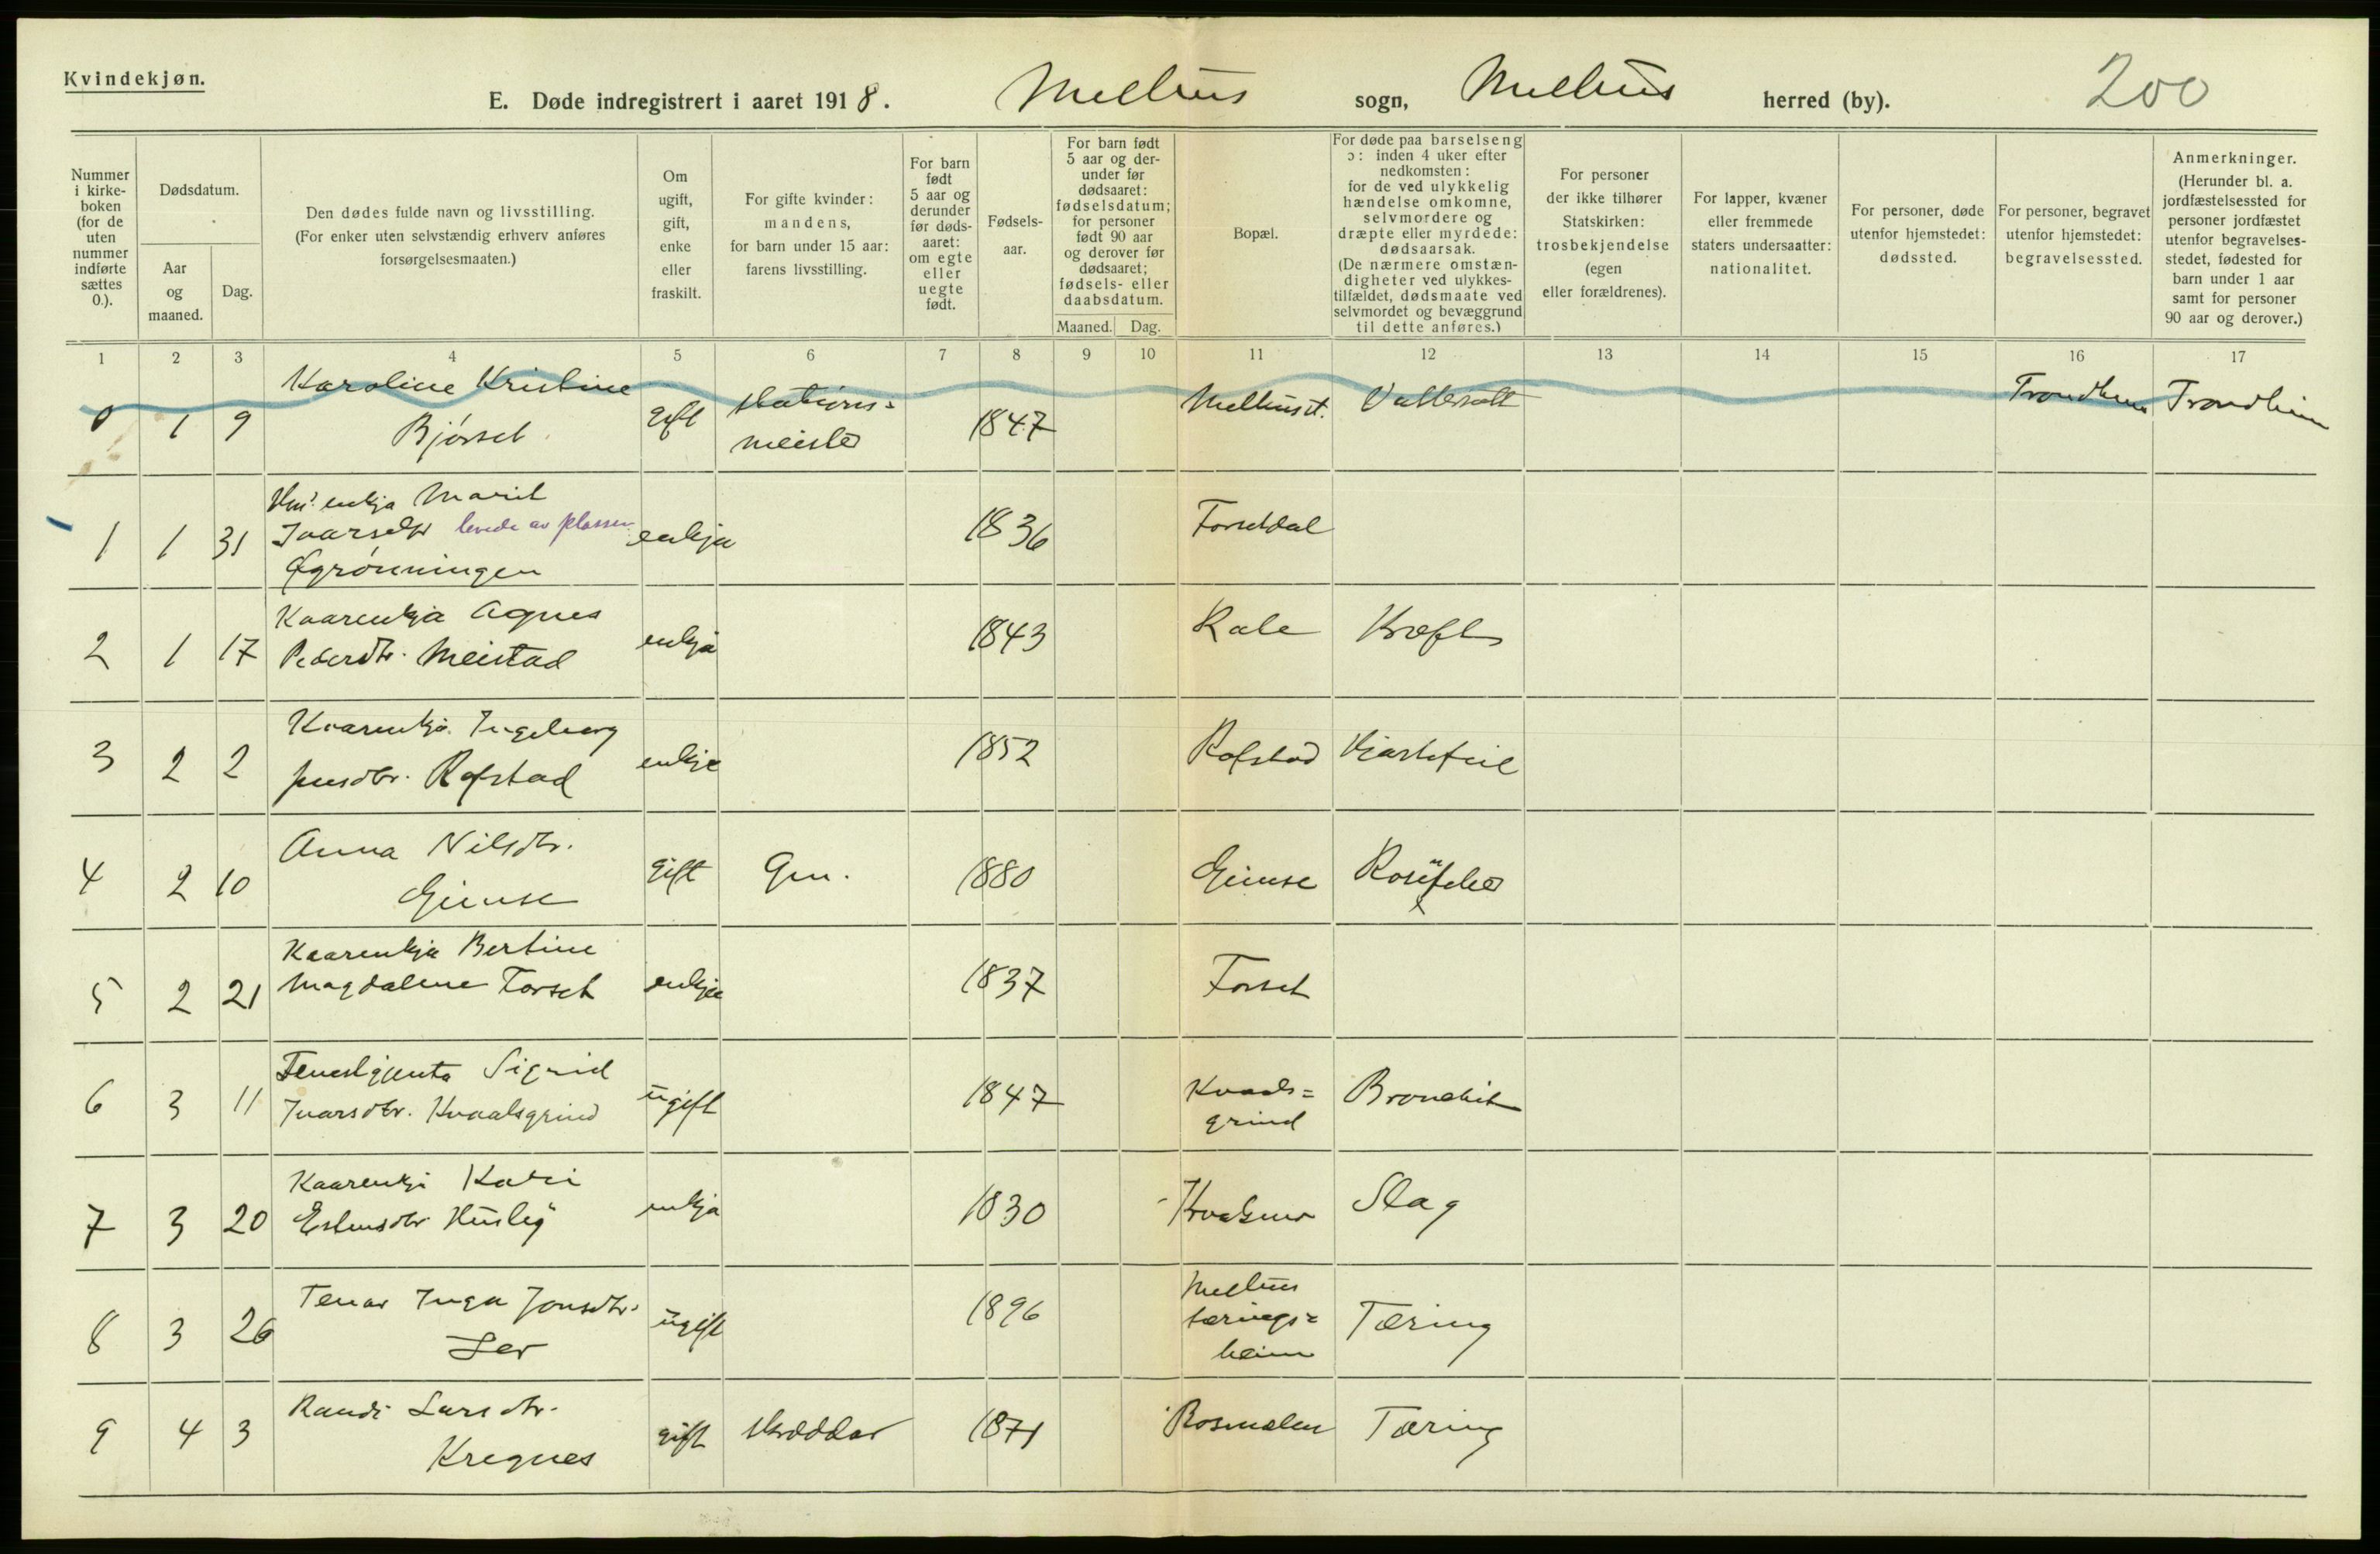 Kvindekjøn.
E. Døde indregistrert i aaret 1918. Melhus sogn, Melhus herred (by). 200
Nummer i kirkeboken (for de uten nummer indførte sættes 0.).
Dødsdatum.
Aar og maaned.
Dag.
Den dødes fulde navn og livsstilling.
(For enker uten selvstændig erhverv anføres forsørgelsesmaaten.)
Om ugift, gift, enke eller fraskilt.
For gifte kvinder: mandens, for barn under 15 aar: farens livsstilling.
For barn født 5 aar og derunder før dødsaaret: om egte eller uegte født.
Fødselsaar.
For barn født 5 aar og derunder før dødsaaret: fødselsdatum; for personer født 90 aar og derover før dødsaaret; fødsels- eller daabsdatum.
Maaned.
Dag.
Bopæl.
For døde paa barselseng ɔ: inden 4 uker efter nedkomsten: for de ved ulykkelig hændelse omkomne, selvmordere og dræpte eller myrdede: dødsaarsak.
(De nærmere omstændigheter ved ulykkestilfældet, dødsmaate ved selvmordet og bevæggrund til dette anføres.)
For personer der ikke tilhører Statskirken: trosbekjendelse (egen eller forældrenes).
For lapper, kvæner eller fremmede staters undersaatter: nationalitet.
For personer, døde utenfor hjemstedet: dødssted.
For personer, begravet utenfor hjemstedet: begravelsessted.
Anmerkninger.
(Herunder bl. a. jordfæstelsessted for personer jordfæstet utenfor begravelsesstedet, fødested for barn under 1 aar samt for personer 90 aar og derover.)
1 2 3 4 5 6 7 8 9 10 11 12 13 14 15 16 17
Karoline Kristine
0 1 9 Bjørset gift stations=
meister 1847 Melhus st. Vattersott Trondheim Trondheim
enkja Marit
1 1 31 Ivarsdtr levede av plassen enkja 1836 Forsetdal
Øgrønningen
Kaarenkja Agnes
2 1 17 Pedersdtr. Meistad enkja 1843 Kale Kræft
Kaarenkja Ingeborg
3 2 2 Jensdtr. Rofstad enkje 1852 Rofstad Hjartefeil
Anna Nilsdtr.
4 2 10 Gimse gift Gm. 1880 Gimse
Kaarenkja Bertine
5 2 21 Magdalene Forset enkje 1837 Forset
Tenestgjenta Sigrid
6 3 11 Ivarsdtr. Kvaalsgrind ugift 1847 Kvaals=
grind Bronchit
Kaarenkje Kari
7 3 20 Estensdtr Husby enkja 1830 Slag
8 3 26 Tenar Inga Jonsdtr.
Ler ugift 1896 Melhus
tærings=
heim Tæring
Randi Larsdtr.
9 4 3 Kregnes gift skræddar 1871 Rosmælen Tæring